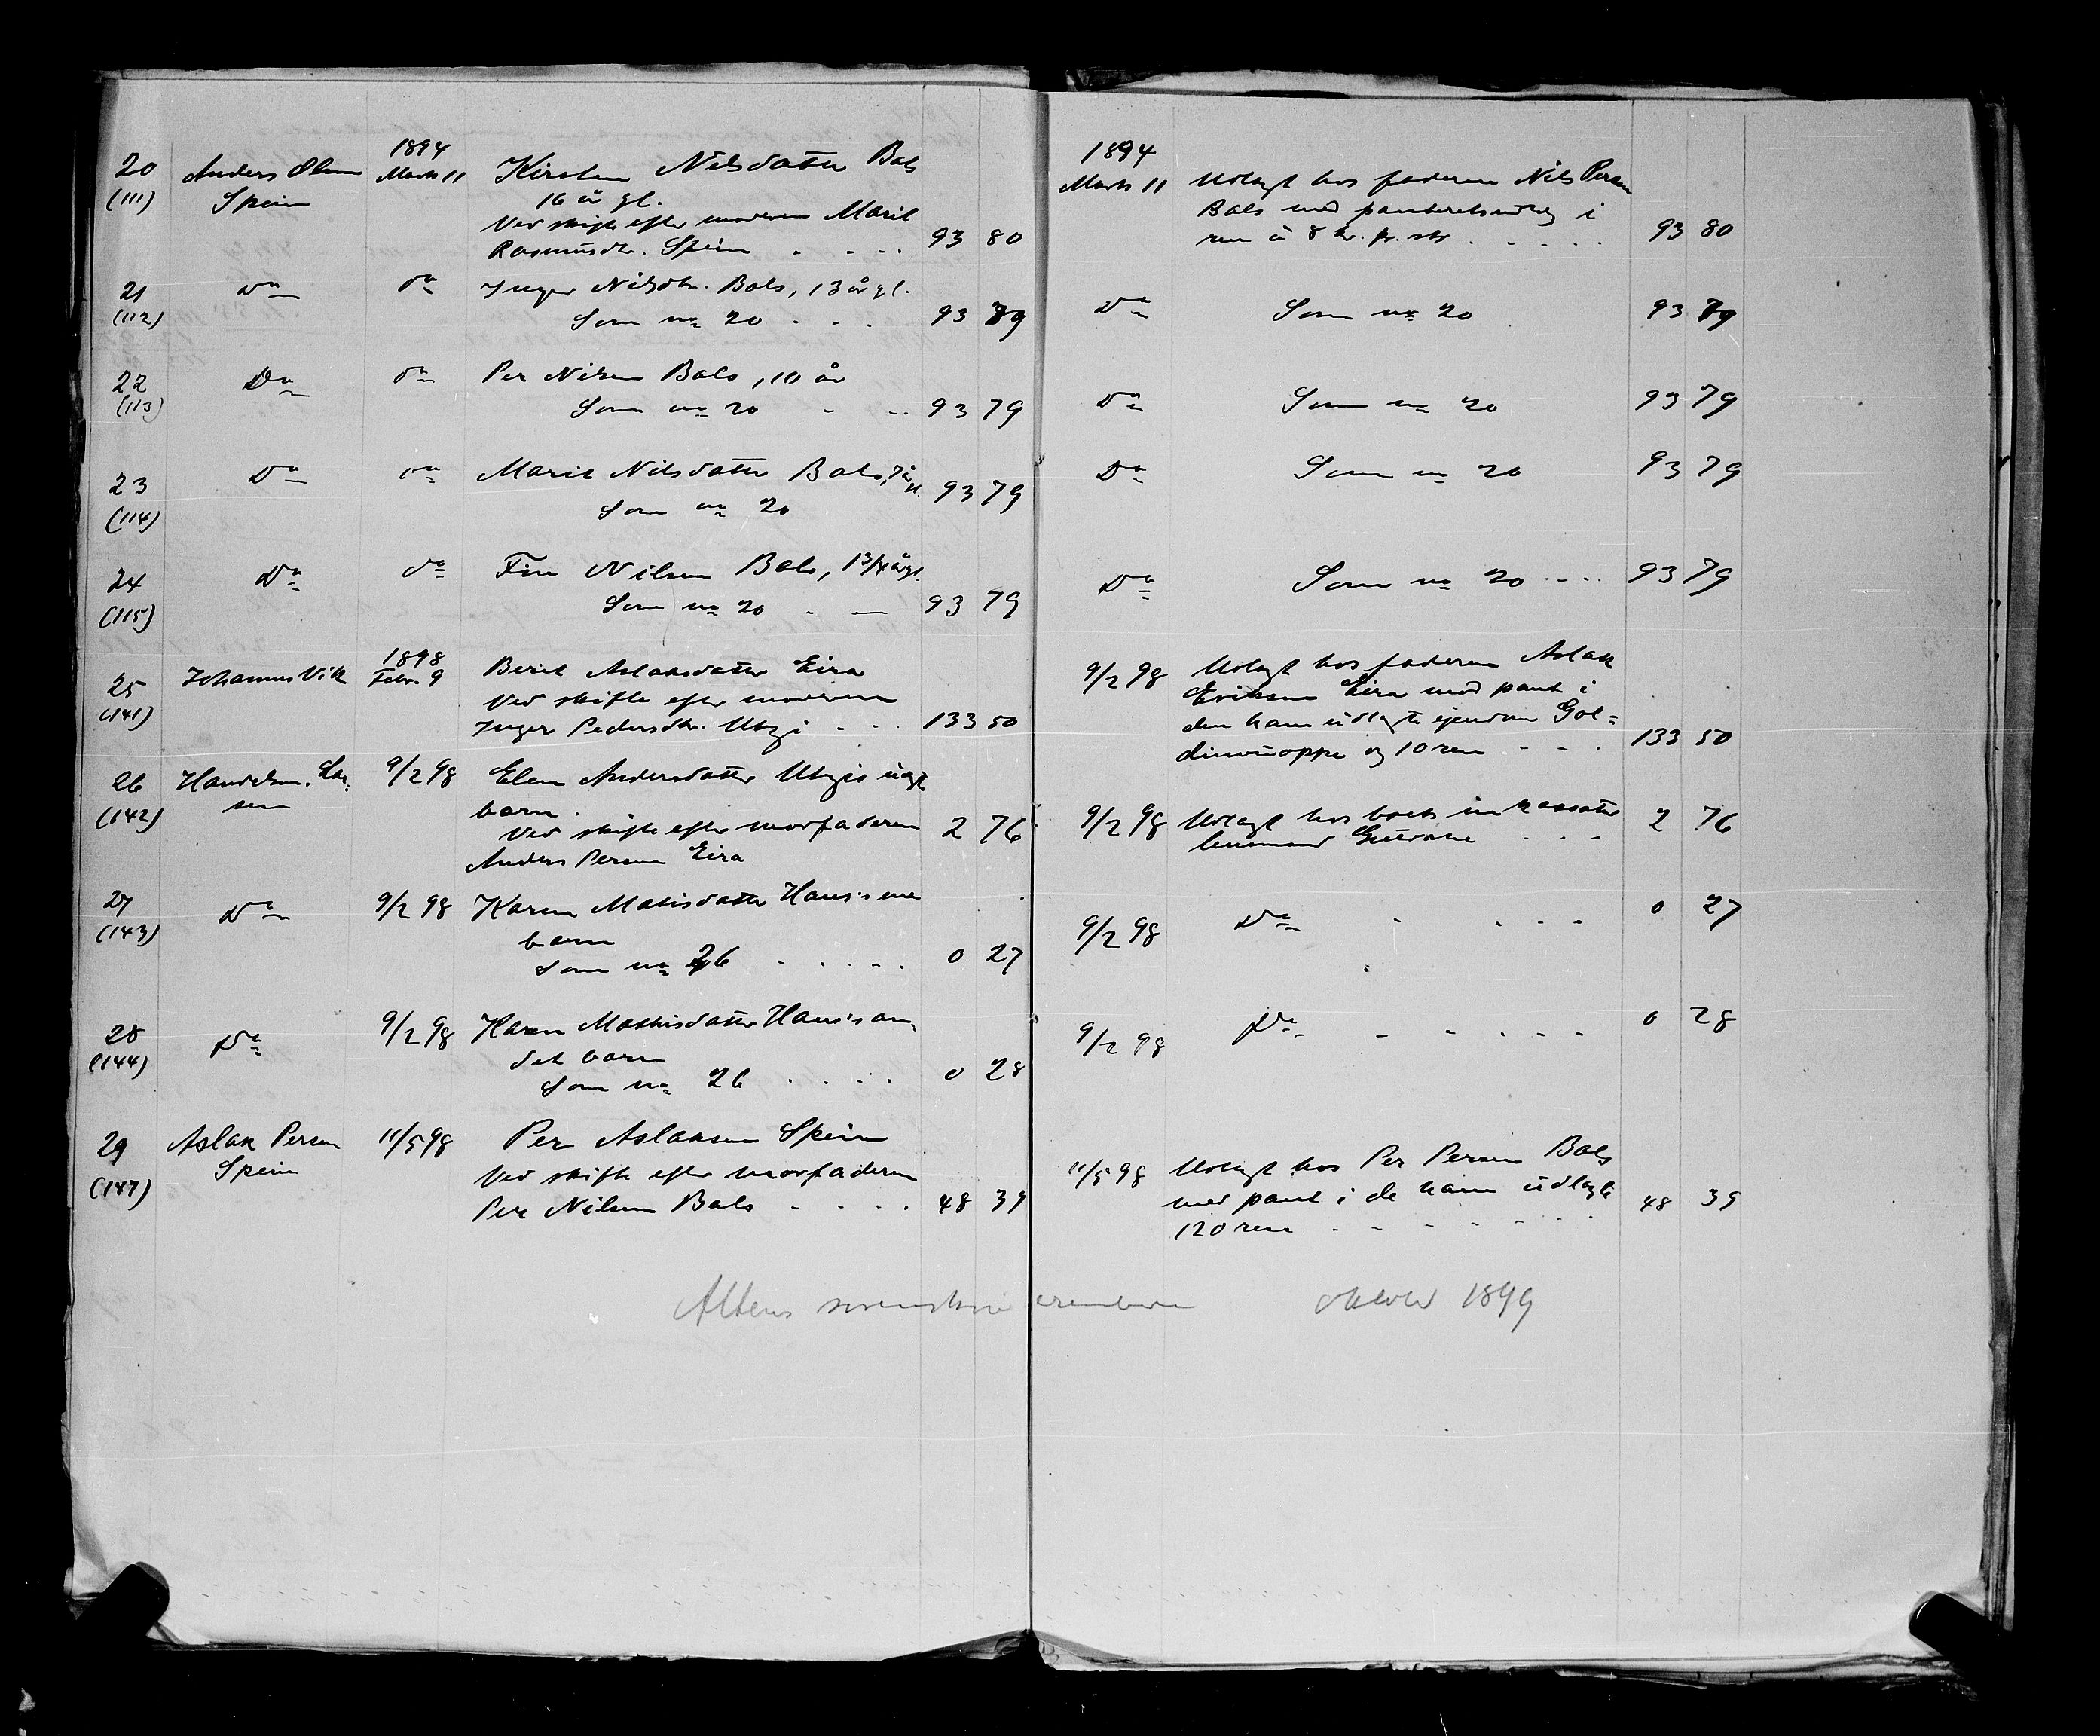 20
(111)
Anders Olsen
Spein
1894
Marts 11
Kirsten Nilsdatter Bals
16 år gl.
Ved skifte efter moderen Marit
Rasmusdtr. Spein . . . . 93 80
1894
Marts 11
Udlagt hos faderen Nils Persen
Bals med panteretsudlæg i
ren à 8 kr. pr. stk . . . . . 93 80
21
(112)
Do
do
Inger Nilsdtr. Bals, 13 år gl.
Som no 20 . . . 93 79
Do
Som no 20
93 79
22
(113)
Do
do
Per Nilsen Bals, 10 år
Som no 20 - - 93 79
Do
Som no 20
93 79
23
(114)
Do
do
Marit Nilsdatter Bals, 7 år gl.
Som no 20
93 79
Do
Som no 20
93 79
24
(115)
Do
do
Fin Nilsen Bals, 1 3/4 år gl.
Som no 20 . — 93 79
Do
Som no 20 . . . . 93 79
25
(141)
Johannes Vik
1898
Febr. 9
Berit Aslaksdatter Eira
Ved skifte efter moderen
Inger Pedersdtr. Utzi - - . 133 50
9/2 98
Udlagt hos faderen Aslak
Eriksen Eira med pant i
den ham udlagte ejendom Gol=
dinvuoppe og 10 ren - - . 133 50
26
(142)
Handelsm. Lar=
sen
9/2 98
Elen Andersdatter Utzis uægte
barn.
Ved skifte efter morfaderen
Anders Persen Eira
2 76
9/2 98
Udlagt hos boets inkassator
lensmand . . . 2 76
27
(143)
Do
9/2 98
Karen Mathisdatter Hansis ene
barn
Som no 26 . . . . . 0 27
9/2 98
Do . . . .
0 27
28
(144)
Do
9/2 98
Karen Mathisdatter Hansis an=
det barn
Som no 26 . . . . 0 28
9/2 98
Do - - . . . .
0 28
29
(147)
Aslak Persen
Spein
11/5 98
Per Aslaksen Spein
Ved skifte efter morfaderen
Per Nilsen Bals . . . . 48 39
11/5 98
Udlagt hos Per Persen Bals
med pant i de ham udlagte
120 ren . - - - - - . . 48 39
Altens sorenskriverembede oktober 1899